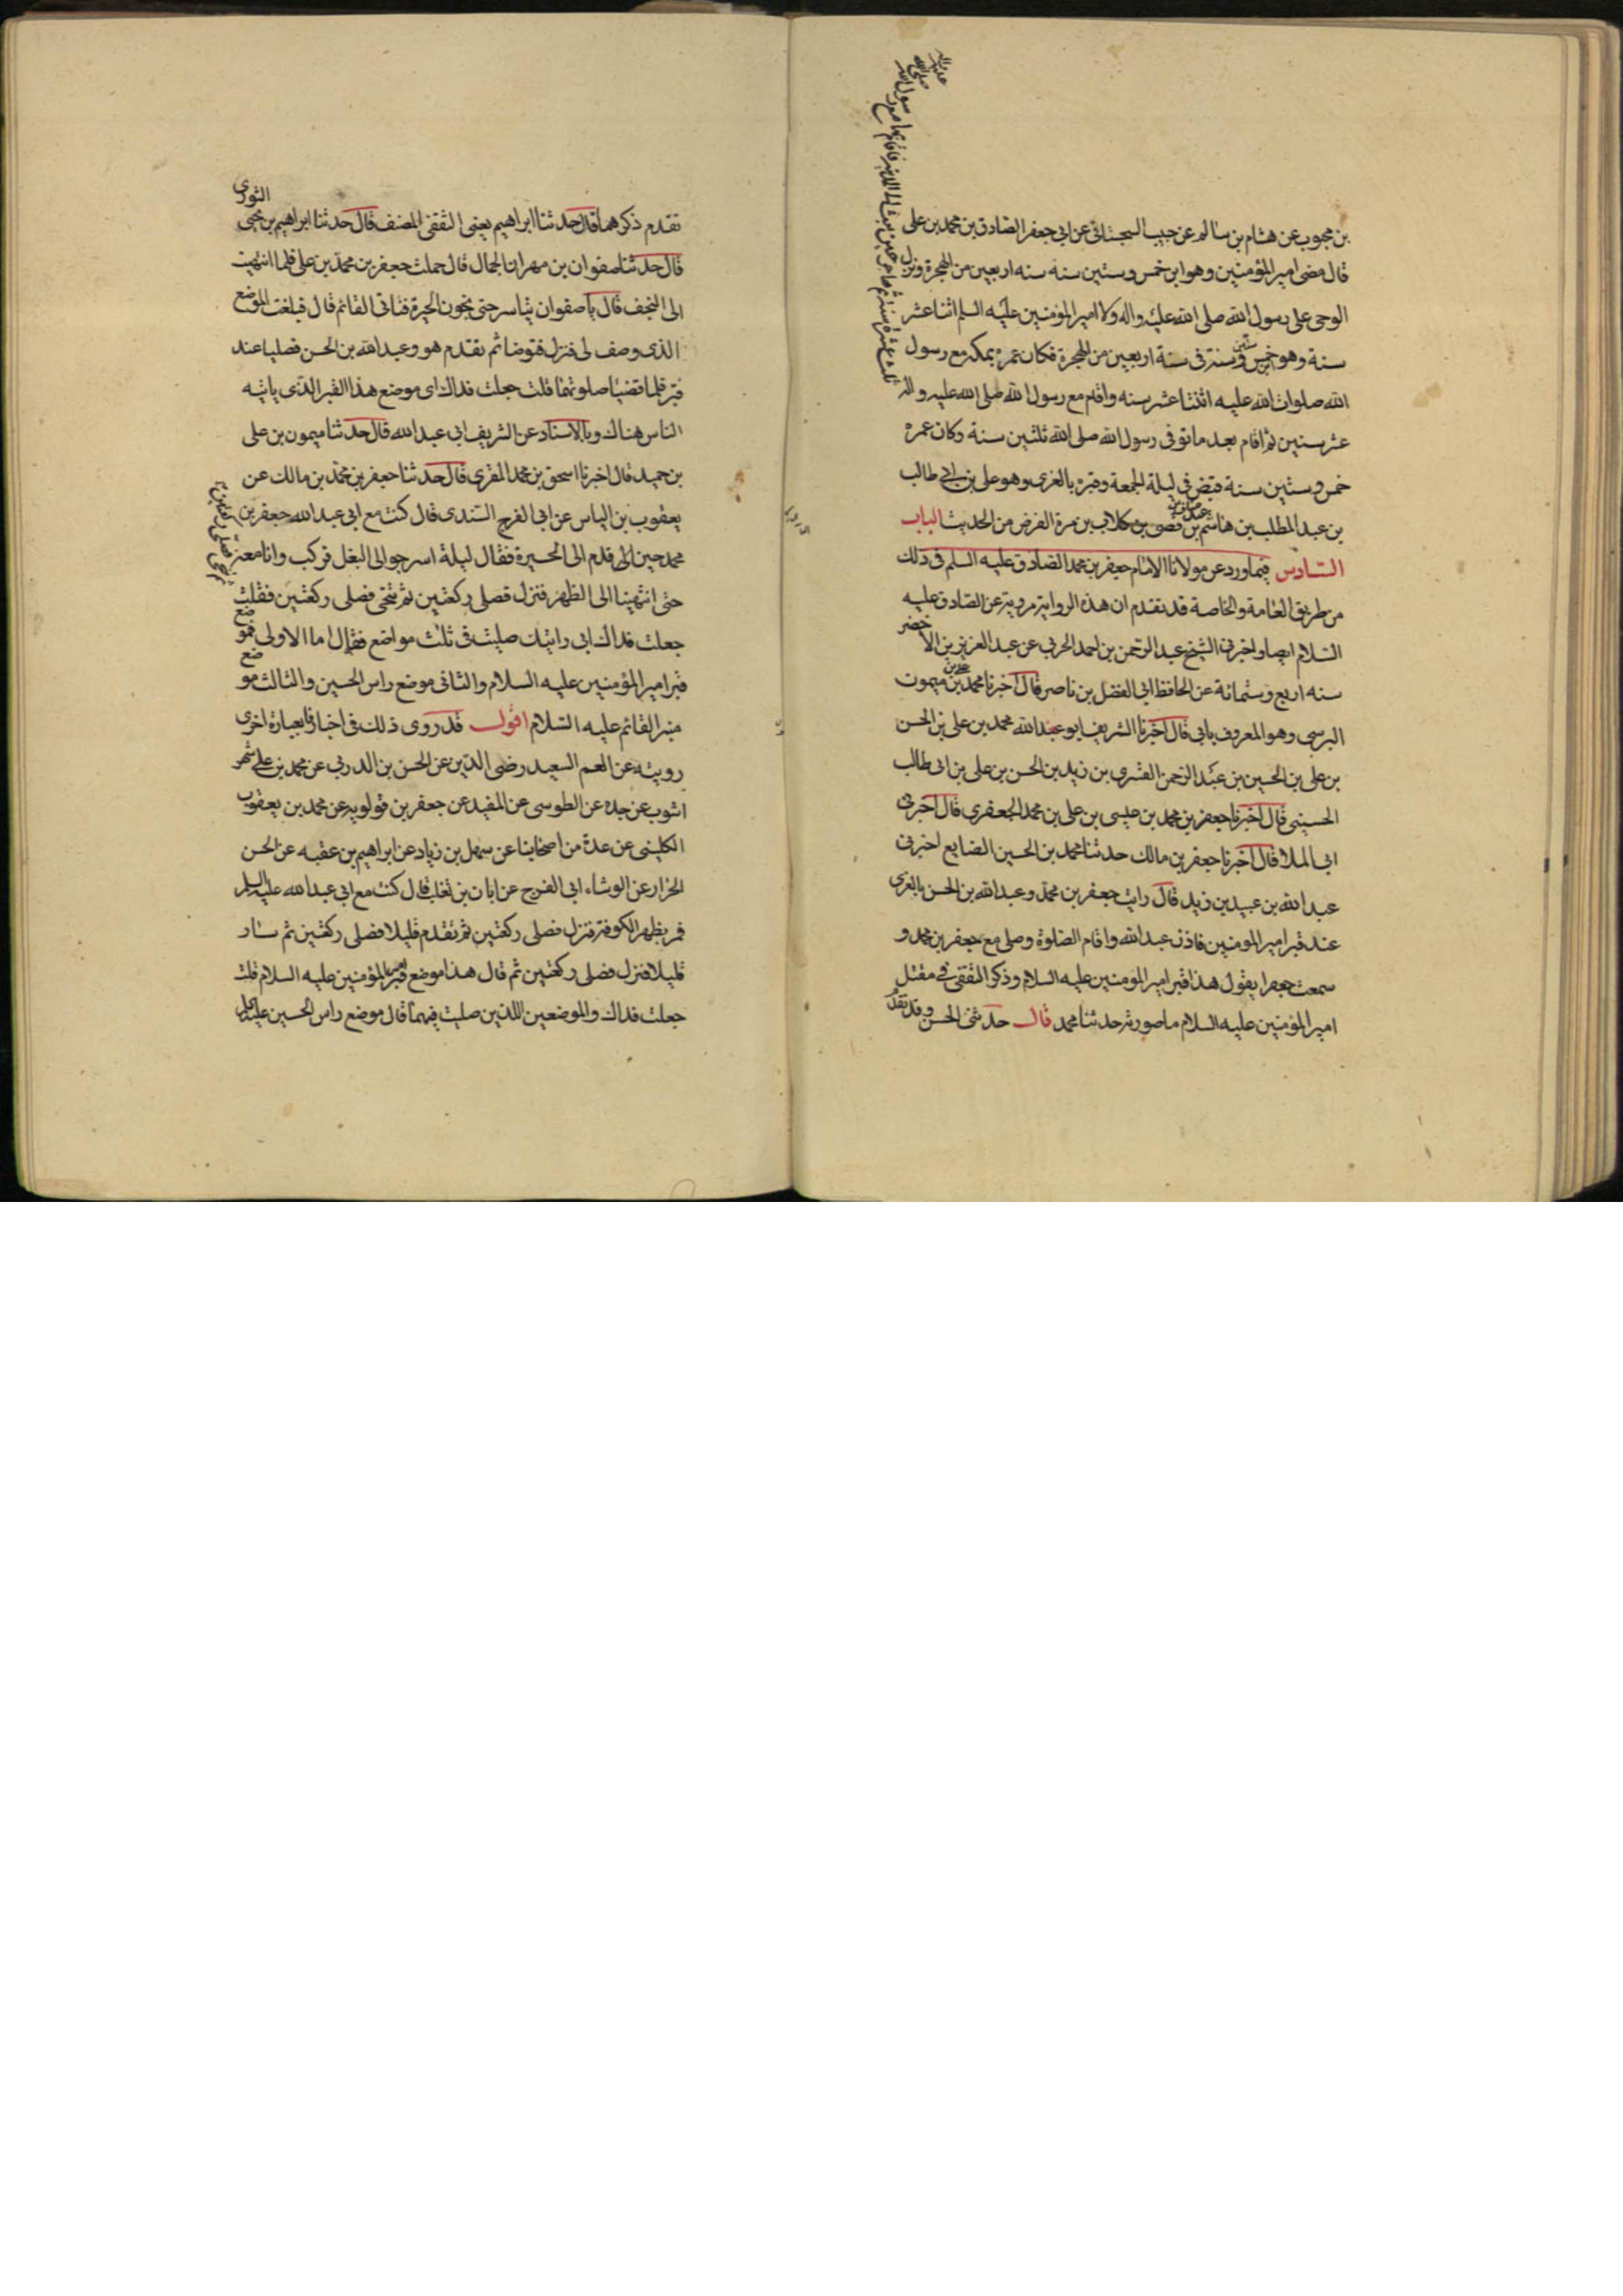 بن محبوب عن هشام بن سالم عن حبيب السجستاني عن ابي جعفر الصادق بن محمد بن علي
قال مضى امير المؤمنين وهو ابن خمس وستين سنه سنه اربعين من الهجرة ونزل
الوحى على رسول الله صلى الله عليه واله ولا امير المؤمنين عليه السلم اثنا عشر
سنة وهو خمس وستين سنة في سنة اربعين من الهجرة فكان عمره بمكة مع رسول
الله صلوات الله عليه اثنتا عشر سنه واقام مع رسول الله صلى الله عليه واله
عشر سنين ثم اقام بعد ما توفى رسول الله صلى الله ثلثين سنة وكان عمره
خمس وستين سنة قبض في ليلة الجمعة وقبره بالغرى وهو على بن ابي طالب
بن عبد المطلب بن هاشم بن عبد مناف بن قصى بن كلاب بن مرة الغرض من الحديث الباب
السادس فيما ورد عن مولانا الامام جعفر بن محمد الصادق عليه السلم في ذلك
من طريق العامة والخاصة قد تقدم ان هذه الرواية مروية عن الصادق عليه
السلام ايضا واخبرني الشيخ عبد الرحمن بن احمد الحربي عن عبد العزيز بن الاخضر
سنه اربع وستمائة عن الحافظ ابي الفضل بن ناصر قال اخبرنا محمد بن علي بن ميمون
البرسي وهو المعروف بابي قال اخبرنا الشريف ابو عبد الله محمد بن علي بن الحسن
بن علي بن الحسين بن عبد الرحمن الشجري بن زيد بن الحسن بن علي بن ابي طالب
الحسيني قال اخبرنا جعفر بن محمد بن عيسى بن علي بن محمد الجعفري قال اخبرني
ابي املا قال اخبرنا جعفر بن مالك حدثنا محمد بن الحسين الصايغ اخبرني
عبد الله بن عبيد بن زيد قال رايت جعفر بن محمد وعبد الله بن الحسن بالغرى
عند قبر امير المومنين فاذن عبد الله واقام الصلوة وصلى مع جعفر بن محمد و
سمعت جعفرا يقول هذا قبر امير المومنين عليه السلام وذكر الثقفي في مقتل
امير المؤمنين عليه السلام ما صورته حدثنا محمد قال حدثني الحسن وقد تقدم
تقدم ذكرهما قال حدثنا ابراهيم يعني الثقفي المصنف قال حدثنا ابراهيم بن يحيى الثورى
قال حدثنا صفوان بن مهران الجمال قال حملت جعفر بن محمد بن علي فلما انتهيت
الى النجف قال يا صفوان تياسر حتى تجوز الحيرة فتاتي القائم قال فبلغت الموضع
الذى وصف لى فنزل فتوضا ثم تقدم هو وعبد الله بن الحسن فصليا عند
قبر فلما قضيا صلوتهما قلت جعلت فداك اى موضع هذا القبر الذي ياتيه
الناس هناك وبالاسناد عن الشريف ابي عبد الله قال حدثنا ميمون بن علي
بن حميد قال اخبرنا اسحق بن محمد المقري قال حدثنا جعفر بن محمد بن مالك عن
يعقوب بن الياس عن ابي الفرج السندى قال كنت مع ابي عبد الله جعفر بن
محمد حين قدم الى الحيرة فقال ليلة اسرجوا لى البغل فركب وانا معه
حتى انتهينا الى الظهر فنزل فصلى ركعتين ثم تنحى فصلى ركعتين فقلت
جعلت فداك اني رايتك صليت في ثلث مواضع فقال اما الاولى فموضع
قبر امير المؤمنين عليه السلام والثانى موضع راس الحسين والثالث موضع
منبر القائم عليه السلام اقول قد روى ذلك في اخبارنا بعبارة اخرى
رويته عن العم السعيد رضى الدين عن الحسن بن الدربي عن محمد بن علي شهر
اشوب عن جده عن الطوسي عن المفيد عن جعفر بن قولويه عن محمد بن يعقوب
الكليني عن عدة من اصحابنا عن سهل بن زياد عن ابراهيم بن عقبه عن الحسن
الخزاز عن الوشاء ابي الفرج عن ابان بن تغلب قال كنت مع ابي عبد الله عليه السلم
فمر بظهر الكوفة فنزل فصلى ركعتين ثم تقدم قليلا فصلى ركعتين ثم سار
قليلا فنزل فصلى ركعتين ثم قال هذا موضع قبر امير المؤمنين عليه السلام قلت
جعلت فداك والموضعين اللذين صليت فيهما قال موضع راس الحسين عليه السلم